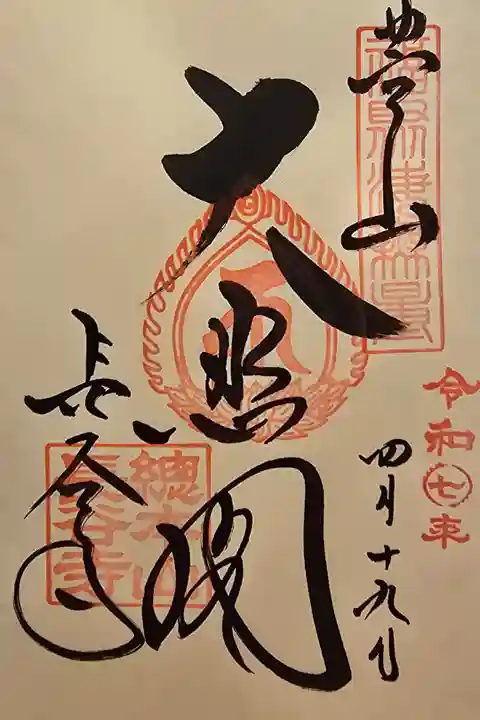 豊山
大悲閣
長谷寺
令和七年
四月十九日
總本山
長谷寺